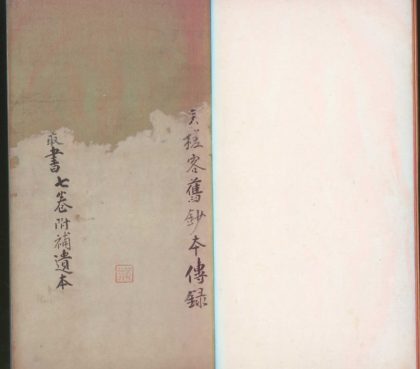 吴槎客舊鈔本傳録
叢書七卷附補遺本